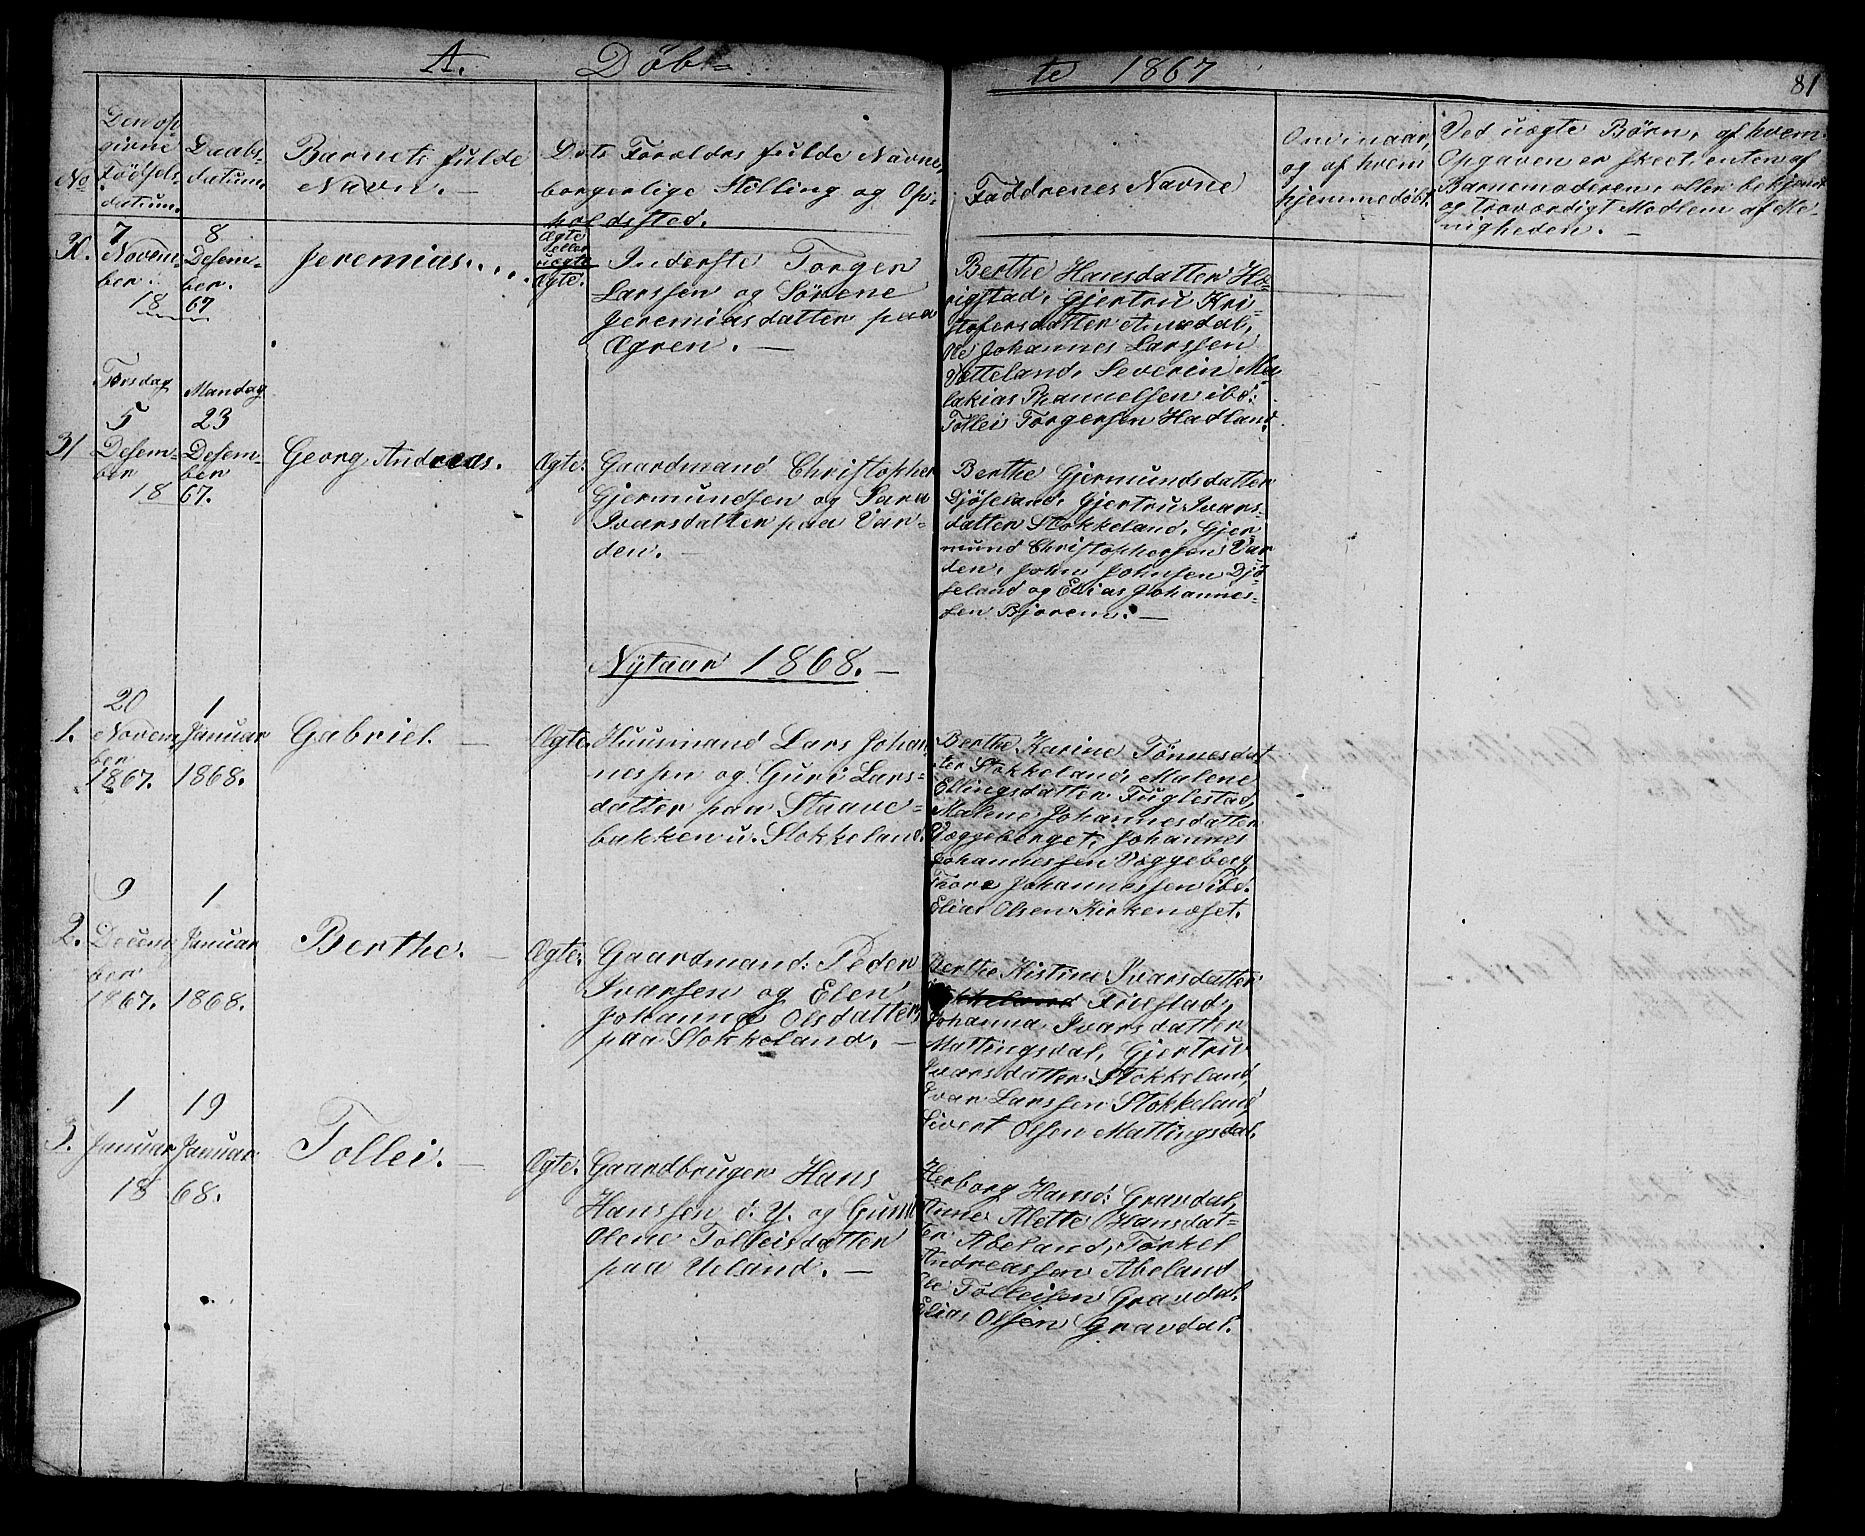 A. Døb-
te 1867
81
No
Den op
givne
Fødsels-
datum.
Daabs-
datum.
Barnets fulde
Navn. —
Dets Foreldres fulde Navne,
borgerlige Stilling og Op-
holdssted.
Ægte
eller
uægte
Faddrenes Navne
Om, naar,
og af hvem
hjemmedøbt.
Ved uægte Børn, af hvem
Opgaven er skeet, enten af
Barnemoderen, eller bekjendt
og troværdigt Medlem af Me-
nigheden. —
30.
7
Novem-
ber.
18
8
Desem-
ber.
67
Jeremias....
Ægte.
Inderste Torgen
Larssen og Sørene
Jeremiasdatter paa
Ægren. —
Berthe Hansdatter Hø-
rigstad, Gjertru Kri-
stofersdatter Amdal,
Ole Johannes Larssen
Vatteland, Severin Ma-
lakias Phanuelsen ibd:
Tollei Torgersen Hadland.
Torsdag
5
Mandag
23
31
Desem-
ber
18
Desem-
ber
67.
Georg Andreas.
Ægte.
Gaardmand Christopher
Gjermundsen og Sara
Ivarsdatter paa Var-
den. —
Berthe Gjermundsdatter
Djøseland, Gjertru Ivars-
datter Stokkeland, Gjer-
mund Christophersen Var
den, John Johnsen Djø-
seland og Elias Johannes-
sen Bjorem. —
Nytaar 1868. —
1.
20
Novem
ber
1867.
1
Januar
1868.
Gabriel. —
Ægte.
Huusmand Lars Johan
nessen og Guri Lars-
datter paa Staave-
bakken u. Stokkeland.
Berthe Karine Tønnesdat
ter Stokkeland, Malene
Ellingsdatter Fuglestad,
Malene Johannesdatter
Væggeberget, Johannes
Johannessen Væggeberg,
Tore Johannessen ibd.
Elias Olsen Kirkenæset.
2.
9
Decem
ber
1867.
1
Januar
1868.
Berthe. —
Ægte.
Gaardmand: Peder
Ivarsen og Elen
Johanne Olsdatter
paa Stokkeland. —
Berthe Kistine Ivarsdatter
Fuestad,
Johanna Ivarsdatter
Mattingsdal, Gjertru
Ivarsdatter Stokkeland,
Ivar Larssen Stokkeland,
Sivert Olsen Mattingsdal.
3.
1
Januar
18
19
Januar
68.
Tollei. —
Ægte.
Gaardbruger Hans
Hanssen d. Y. og Guni
Olene Tolleisdatter
paa Ueland. —
Herborg Hansd: Gravdal,
Anne Alette Hansdat-
ter Abeland, Torkel
Andreassen Abeland
Ole Tolleisen Gravdal,
Elias Olsen Gravdal.